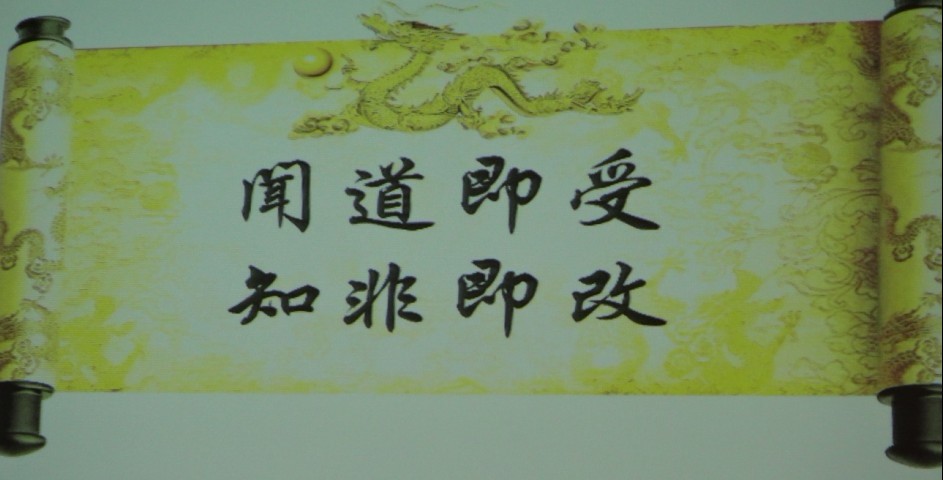 聞道即受
知非即改